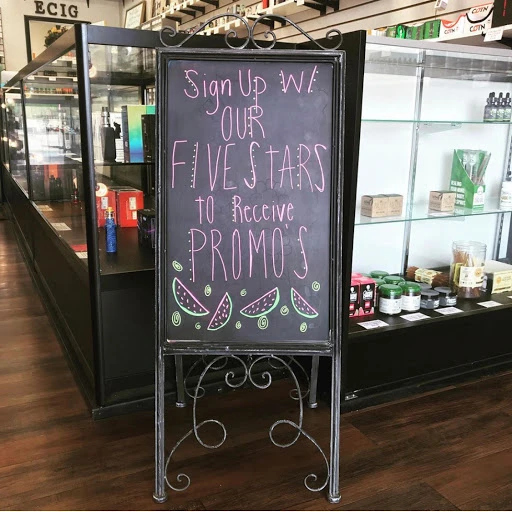 ECIG
CCTN
Sign Up W/
OUR
FIVESTARS
to Receive
PROMO'S